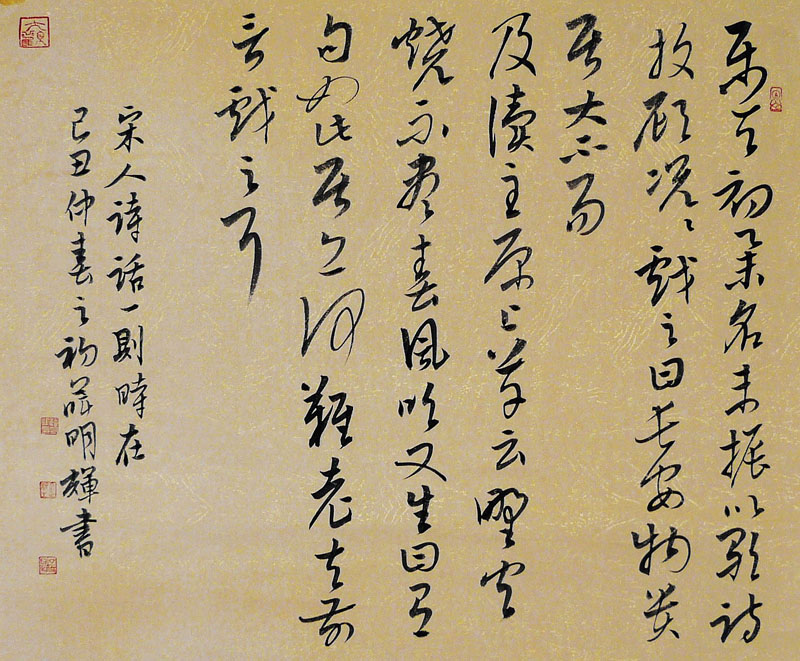 樂天初舉名未振以歌詩
投顧況々戲之曰長安物貴
居大不易
及讀至原上草云野火
燒不盡春風吹又生曰有
句如此居之何難老夫前
言戲之耳
宋人詩話一則時在
己丑仲春之初明輝書